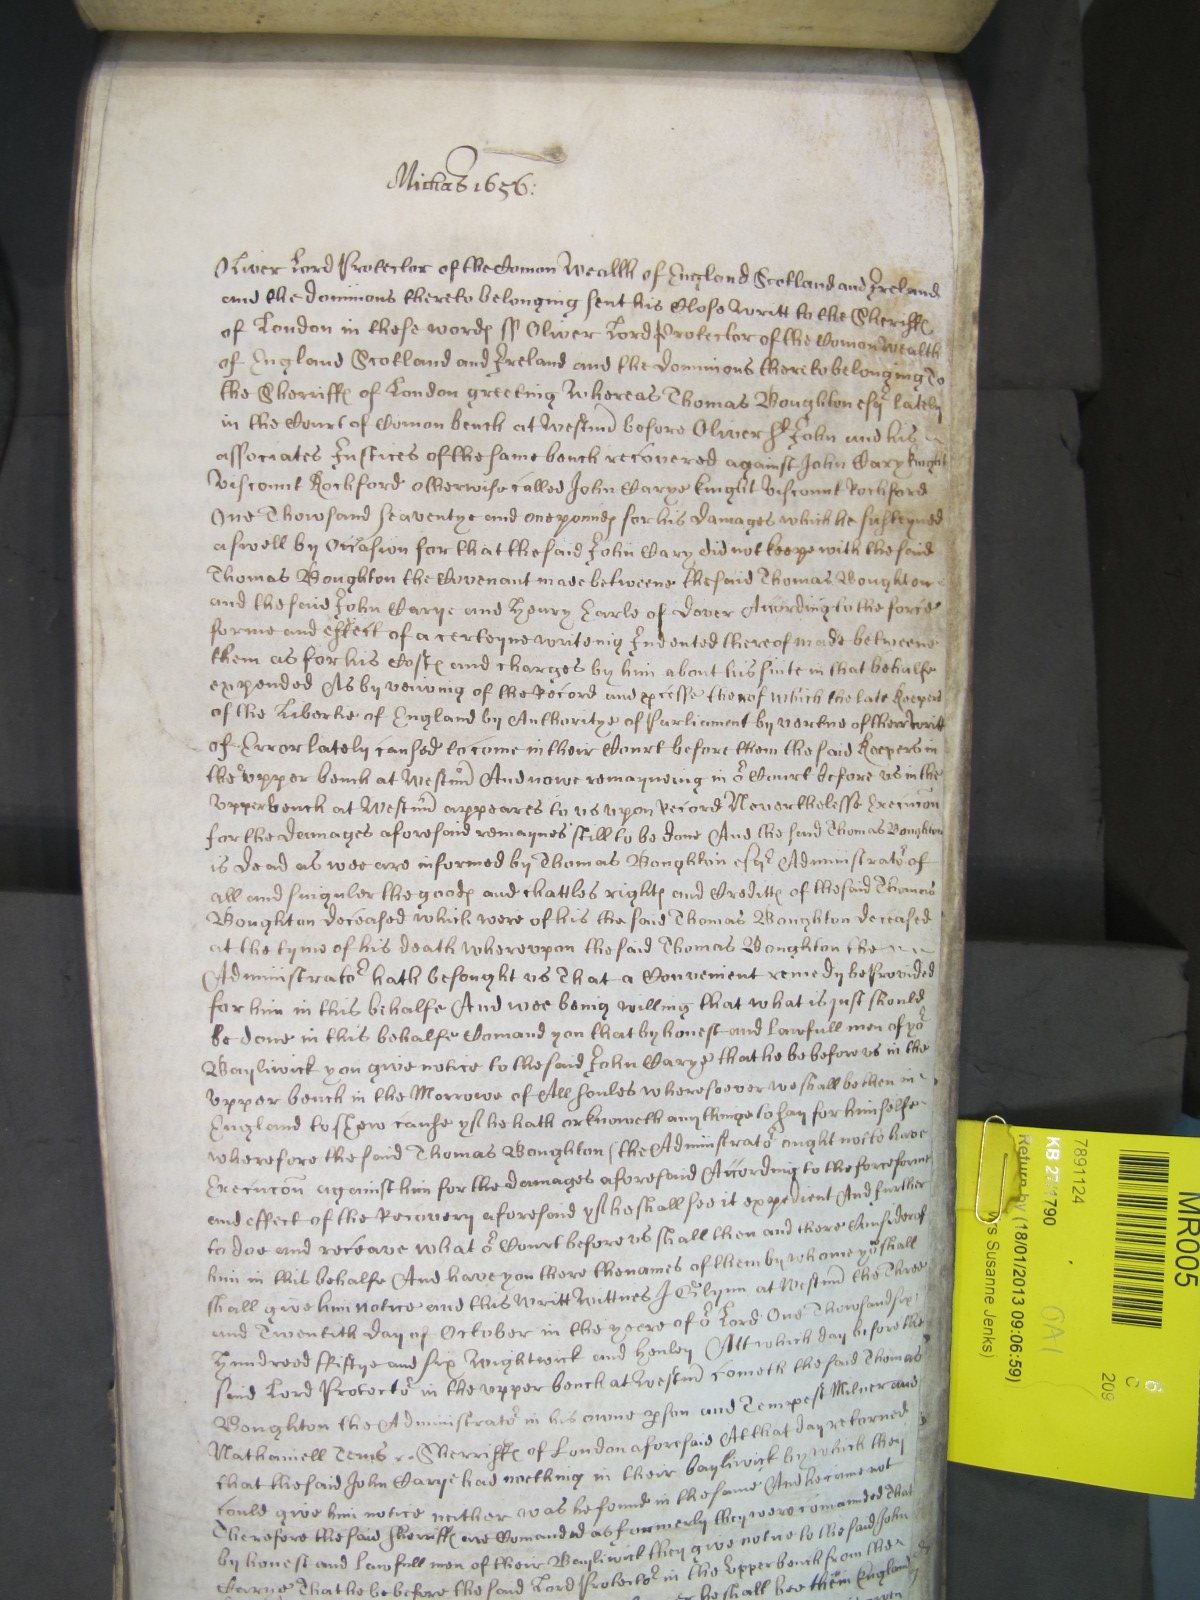 Michas 1656:
Oliver Lord Protector of the Comon Wealth of England Scotland and Ireland
and the dominions thereto belonging sent his Close Writt to the Sheriffe
of London in these words ss Oliver Lord Protector of the Comon Wealth
of England Scotland and Ireland and the dominions thereto belonging To
the Sherriffe of London greeting Whereas Thomas Boughton esqr lately
in the Court of Comon bench at Westmr before Oliver St John and his
associates Justices of the same bench recovered against John Cary knight
Viscount Rochford otherwise called John Carye knight Viscount Rochford
One Thowsand seaventye and one pounds for his damages which he susteyned
aswell by Occasion for that the said John Cary did not keepe with the said
Thomas Boughton the Covenant made betweene the said Thomas Boughton
and the said John Carye and Henry Earle of Dover According to the force
forme and effect of a certeyne writeing Indented thereof made betweene
them as for his Costs and charges by him about his suite in that behalfe
expended As by veiwing of the Record and processe thereof which the late Keepers
of the Libertie of England by Authoritye of Parliament by vertue of their writt
of Error lately caused to come in their Court before them the said Keepers in
the upper bench at Westmr And nowe remayneing in or Court before us in the
Upper bench at Westmr appeares to us upon Record Neverthelesse Execucon
for the damages aforesaid remaynes still to be done And the said Thomas Boughton
is dead as wee are informed by Thomas Boughton esqr Administrator of
all and singuler the goods and chattles rights and Creditts of the said Thomas
Boughton deceased which were of his the said Thomas Boughton deceased
at the tyme of his death whereupon the said Thomas Boughton the
Administrator hath besought us That a Convenient remedy be Provided
for him in this behalfe And wee being willing that what is just should
be done in this behalfe Comand you that by honest and lawfull men of yor
Bayliwick you give notice to the said John Carye that he be before us in the
upper bench in the Morrowe of All soules wheresoever we shall be then in
England to shew cause yf he hath or knoweth any thinge to say for himselfe
wherefore the said Thomas Boughton (the Administrator ought not to have
Execucon against him for the damages aforesaid According to the force forme
and effect of the Recovery aforesaid yf he shall see it expedient And further
to doe and receave what or Court before us shall then and there Consider of
him in this behalfe And have you there the names of them by whome you shall
shall give him notice and this Writt Wittnes J Glynn at Westmr the Three
and Twentith day of October in the yeere of or Lord One Thowsand six
Hundreed Fiftye and six Wightwick and Henley Att which day before the
said Lord Protector in the upper bench at Westmr cometh the said Thomas
Boughton the Administrator in his owne pson and Tempest Milner and
Nathaniell Tems Sherriffe of London aforesaid At that day retorned
that the said John Carye had nothing in their bayliwick by which they
could give him notice neither was he found in the same And he came not
Therefore the said Sherriffe are Comanded as formerly they were comanded That
by honest and lawfull men of their Bayliwick they give notice to the said John
Carye That he be before the said Lord Protector in the Upper bench from the
he shall bee then in England
MR005
6
C
209
7891124
KB 27/1790
OA1
Return by (18/01/2013 09:06:59)
Ms Susanne Jenks)